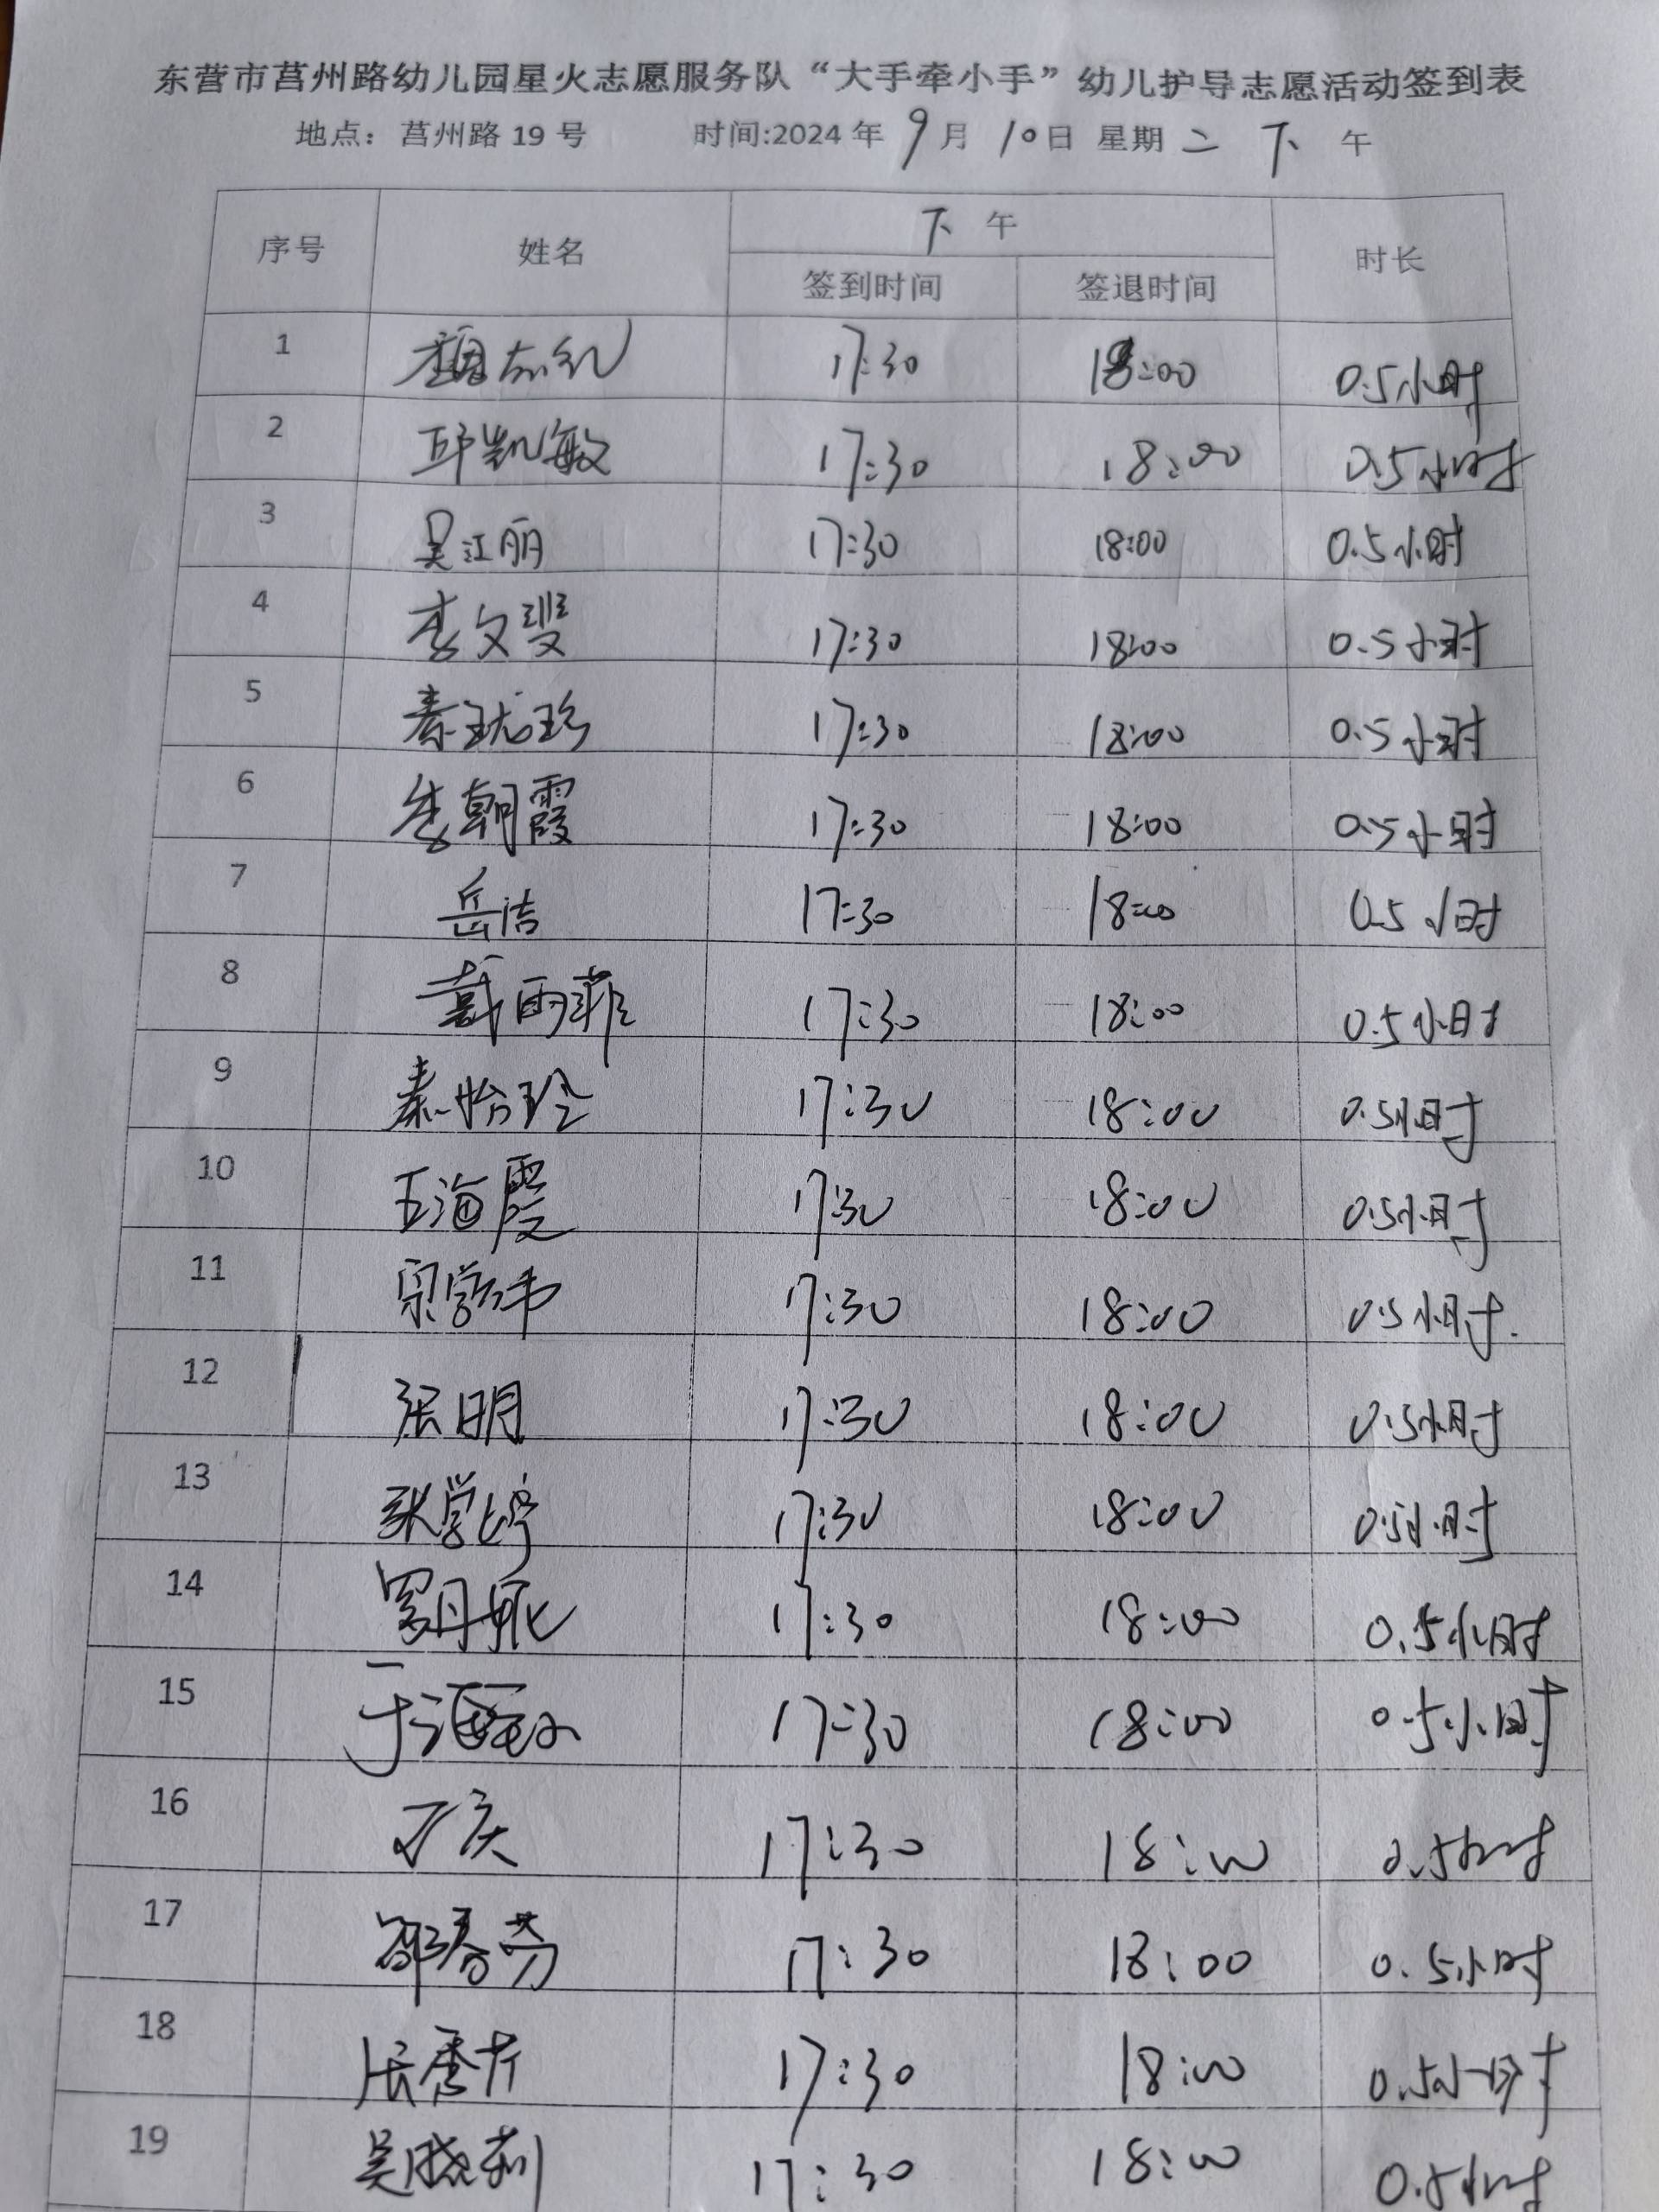 东营市莒州路幼儿园星火志愿服务队“大手牵小手”幼儿护导志愿活动签到表
地点：莒州路 19 号 时间:2024 年 9 月 10 日 星期 二 下 午
序号 姓名 下 午 时长
签到时间 签退时间
1 17:30 18:00 0.5小时
2 邱凯敏 17:30 18:00 0.5小时
3 吴江丽 17:30 18:00 0.5小时
4 李文 17:30 18:00 0.5小时
5 秦珑珍 17:30 18:00 0.5小时
6 李朝霞 17:30 18:00 0.5小时
7 岳洁 17:30 18:00 0.5小时
8 戴雨菲 17:30 18:00 0.5小时
9 秦怡玲 17:30 18:00 0.5小时
10 王海霞 17:30 18:00 0.5小时
11 宗学伟 17:30 18:00 0.5小时
12 张明 17:30 18:00 0.5小时
13 张学婷 17:30 18:00 0.5小时
14 17:30 18:00 0.5小时
15 17:30 18:00 0.5小时
16 17:30 18:00 0.5小时
17 邹春芳 17:30 18:00 0.5小时
18 张秀芹 17:30 18:00 0.5小时
19 吴晓莉 17:30 18:00 0.5小时